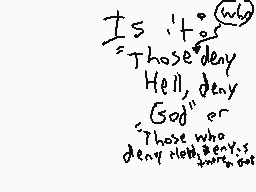 Is it: who
"Those" deny
Hell, deny
God" or
"Those who
deny Hell, deny